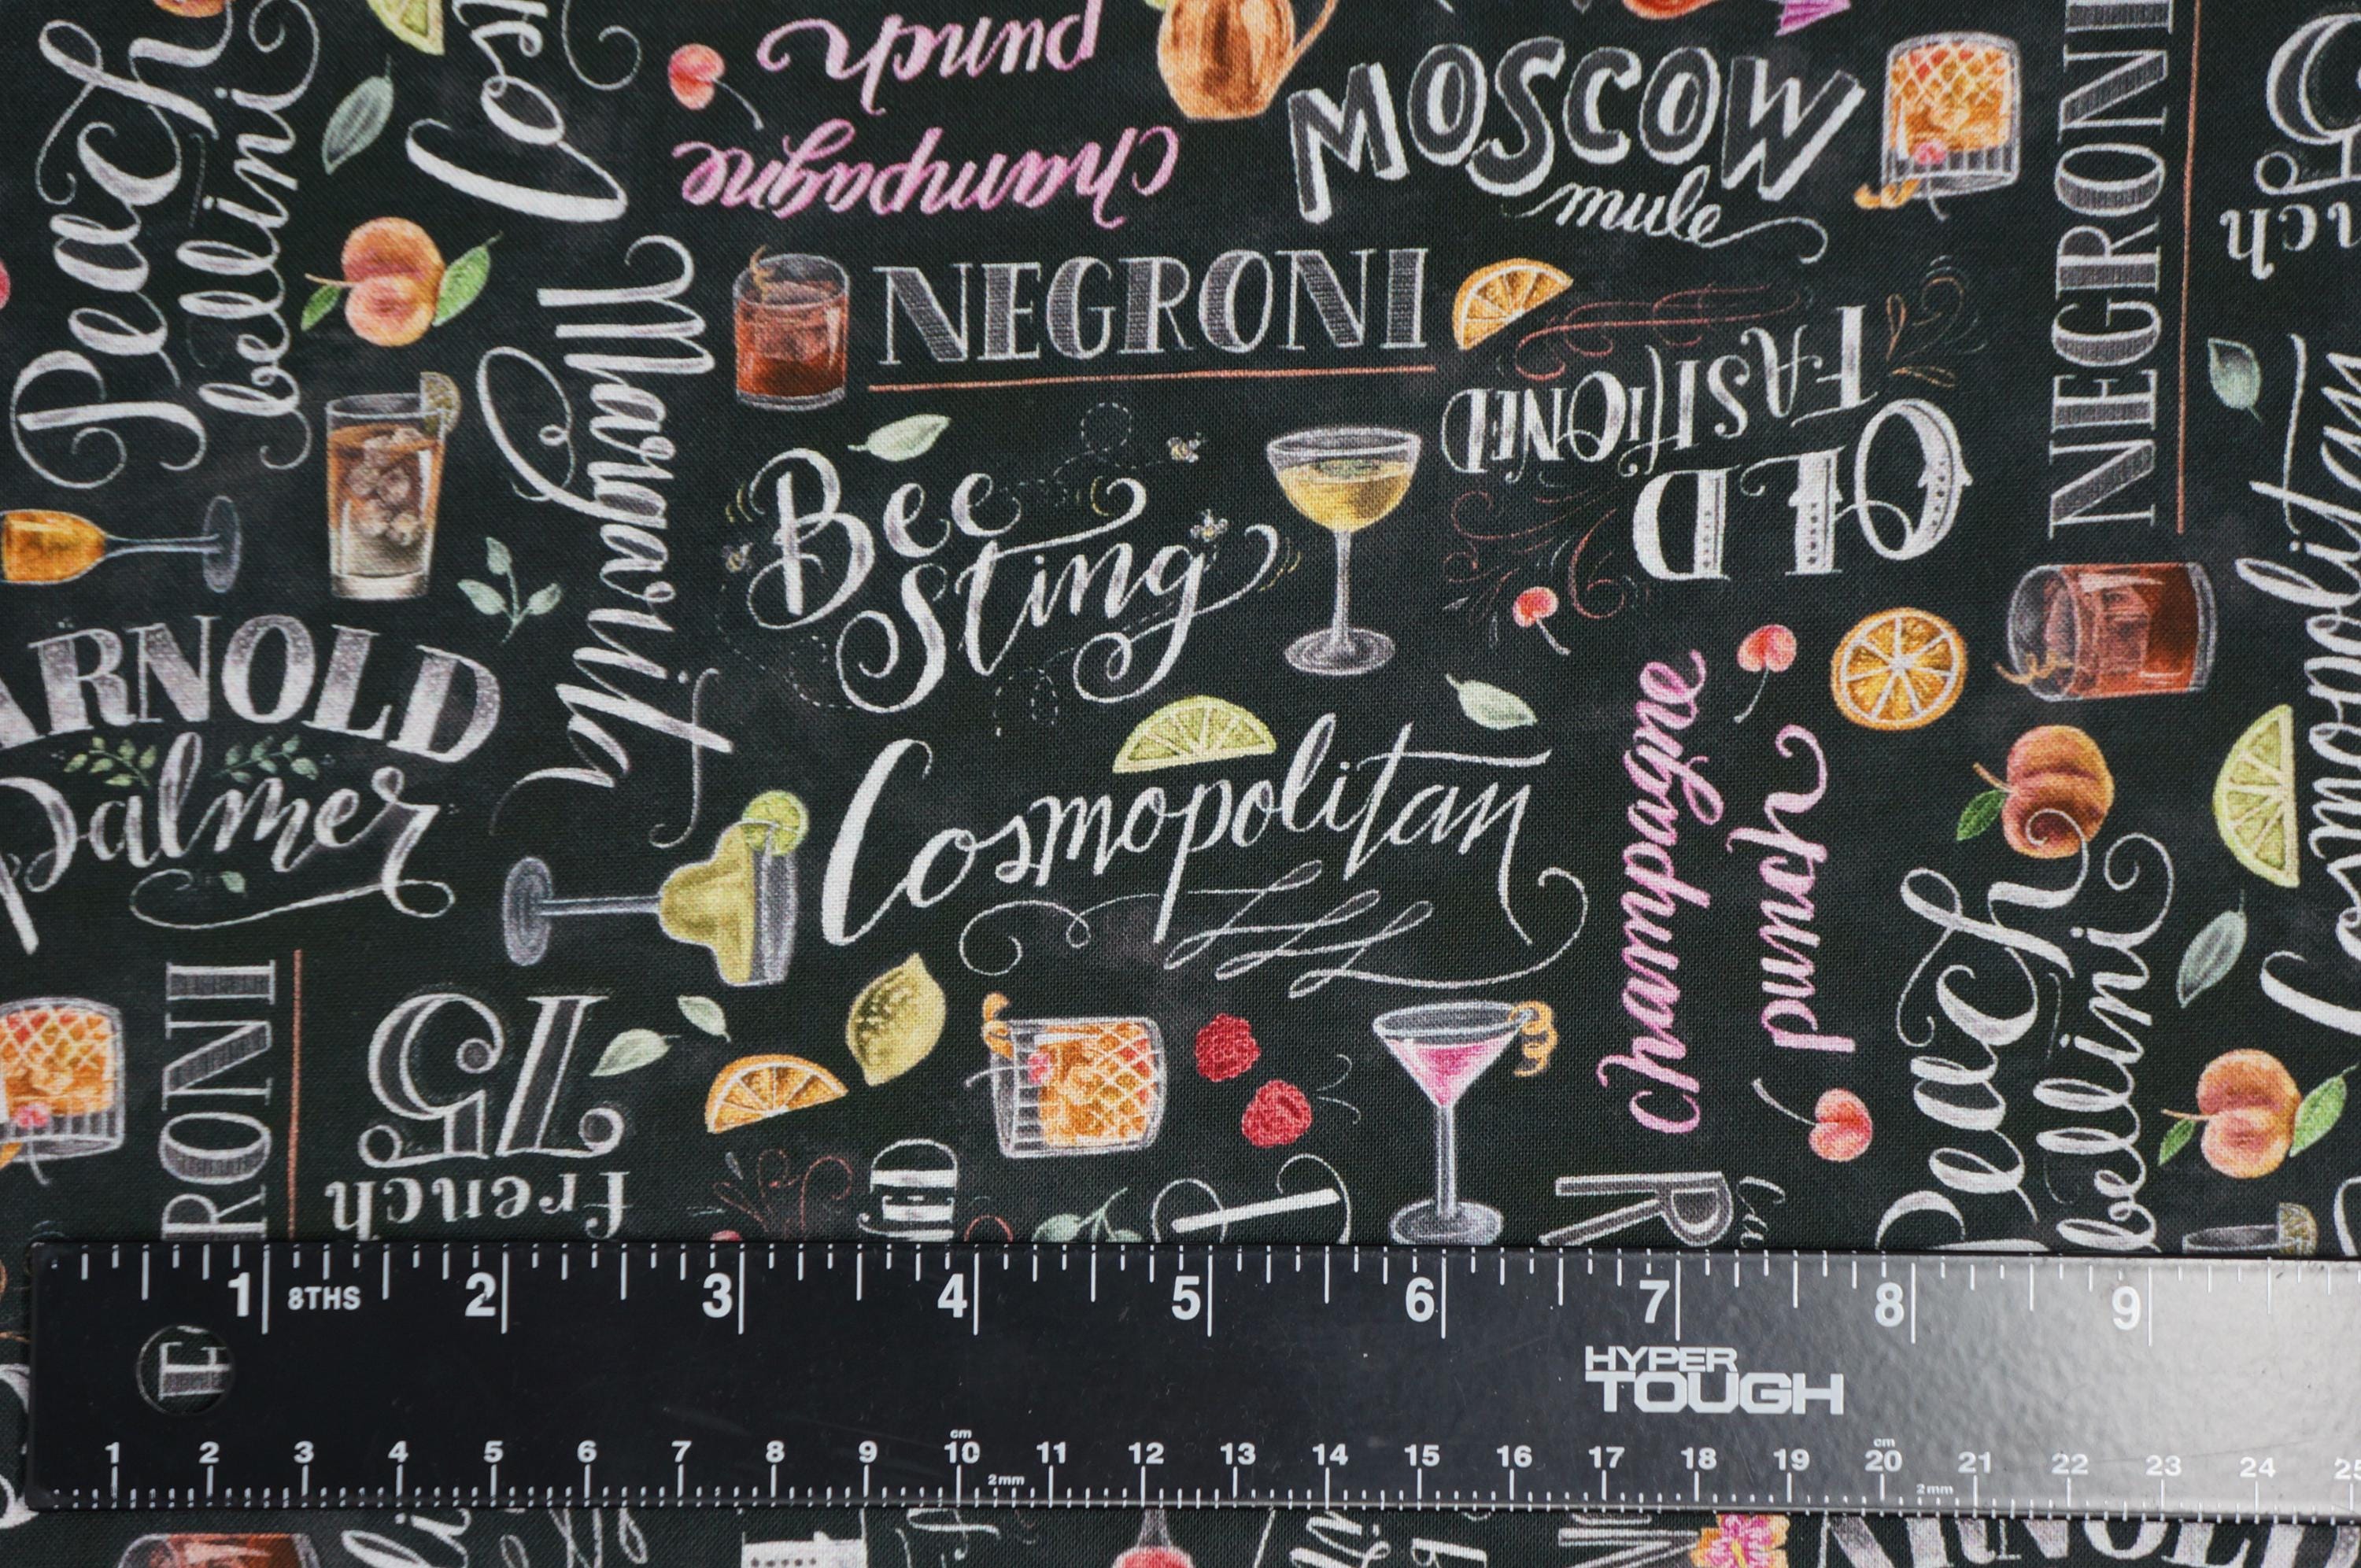 Peach
bellini
Cos
champagne
punch
MOSCOW
mule
NEGRONI
NEGRONI
nch
Margarita
OLD
FASHIONED
Bee
Sting
Cosmopolitan
ARNOLD
Palmer
Cosmopolitan
champagne
punch
Peach
bellini
RONI
French
75
R
E
1 8THS 2 3 4 5 6 7 8 9
HYPER
TOUGH
cm cm
1 2 3 4 5 6 7 8 9 10 11 12 13 14 15 16 17 18 19 20 21 22 23 24 25
2mm 2mm
ARNOLD